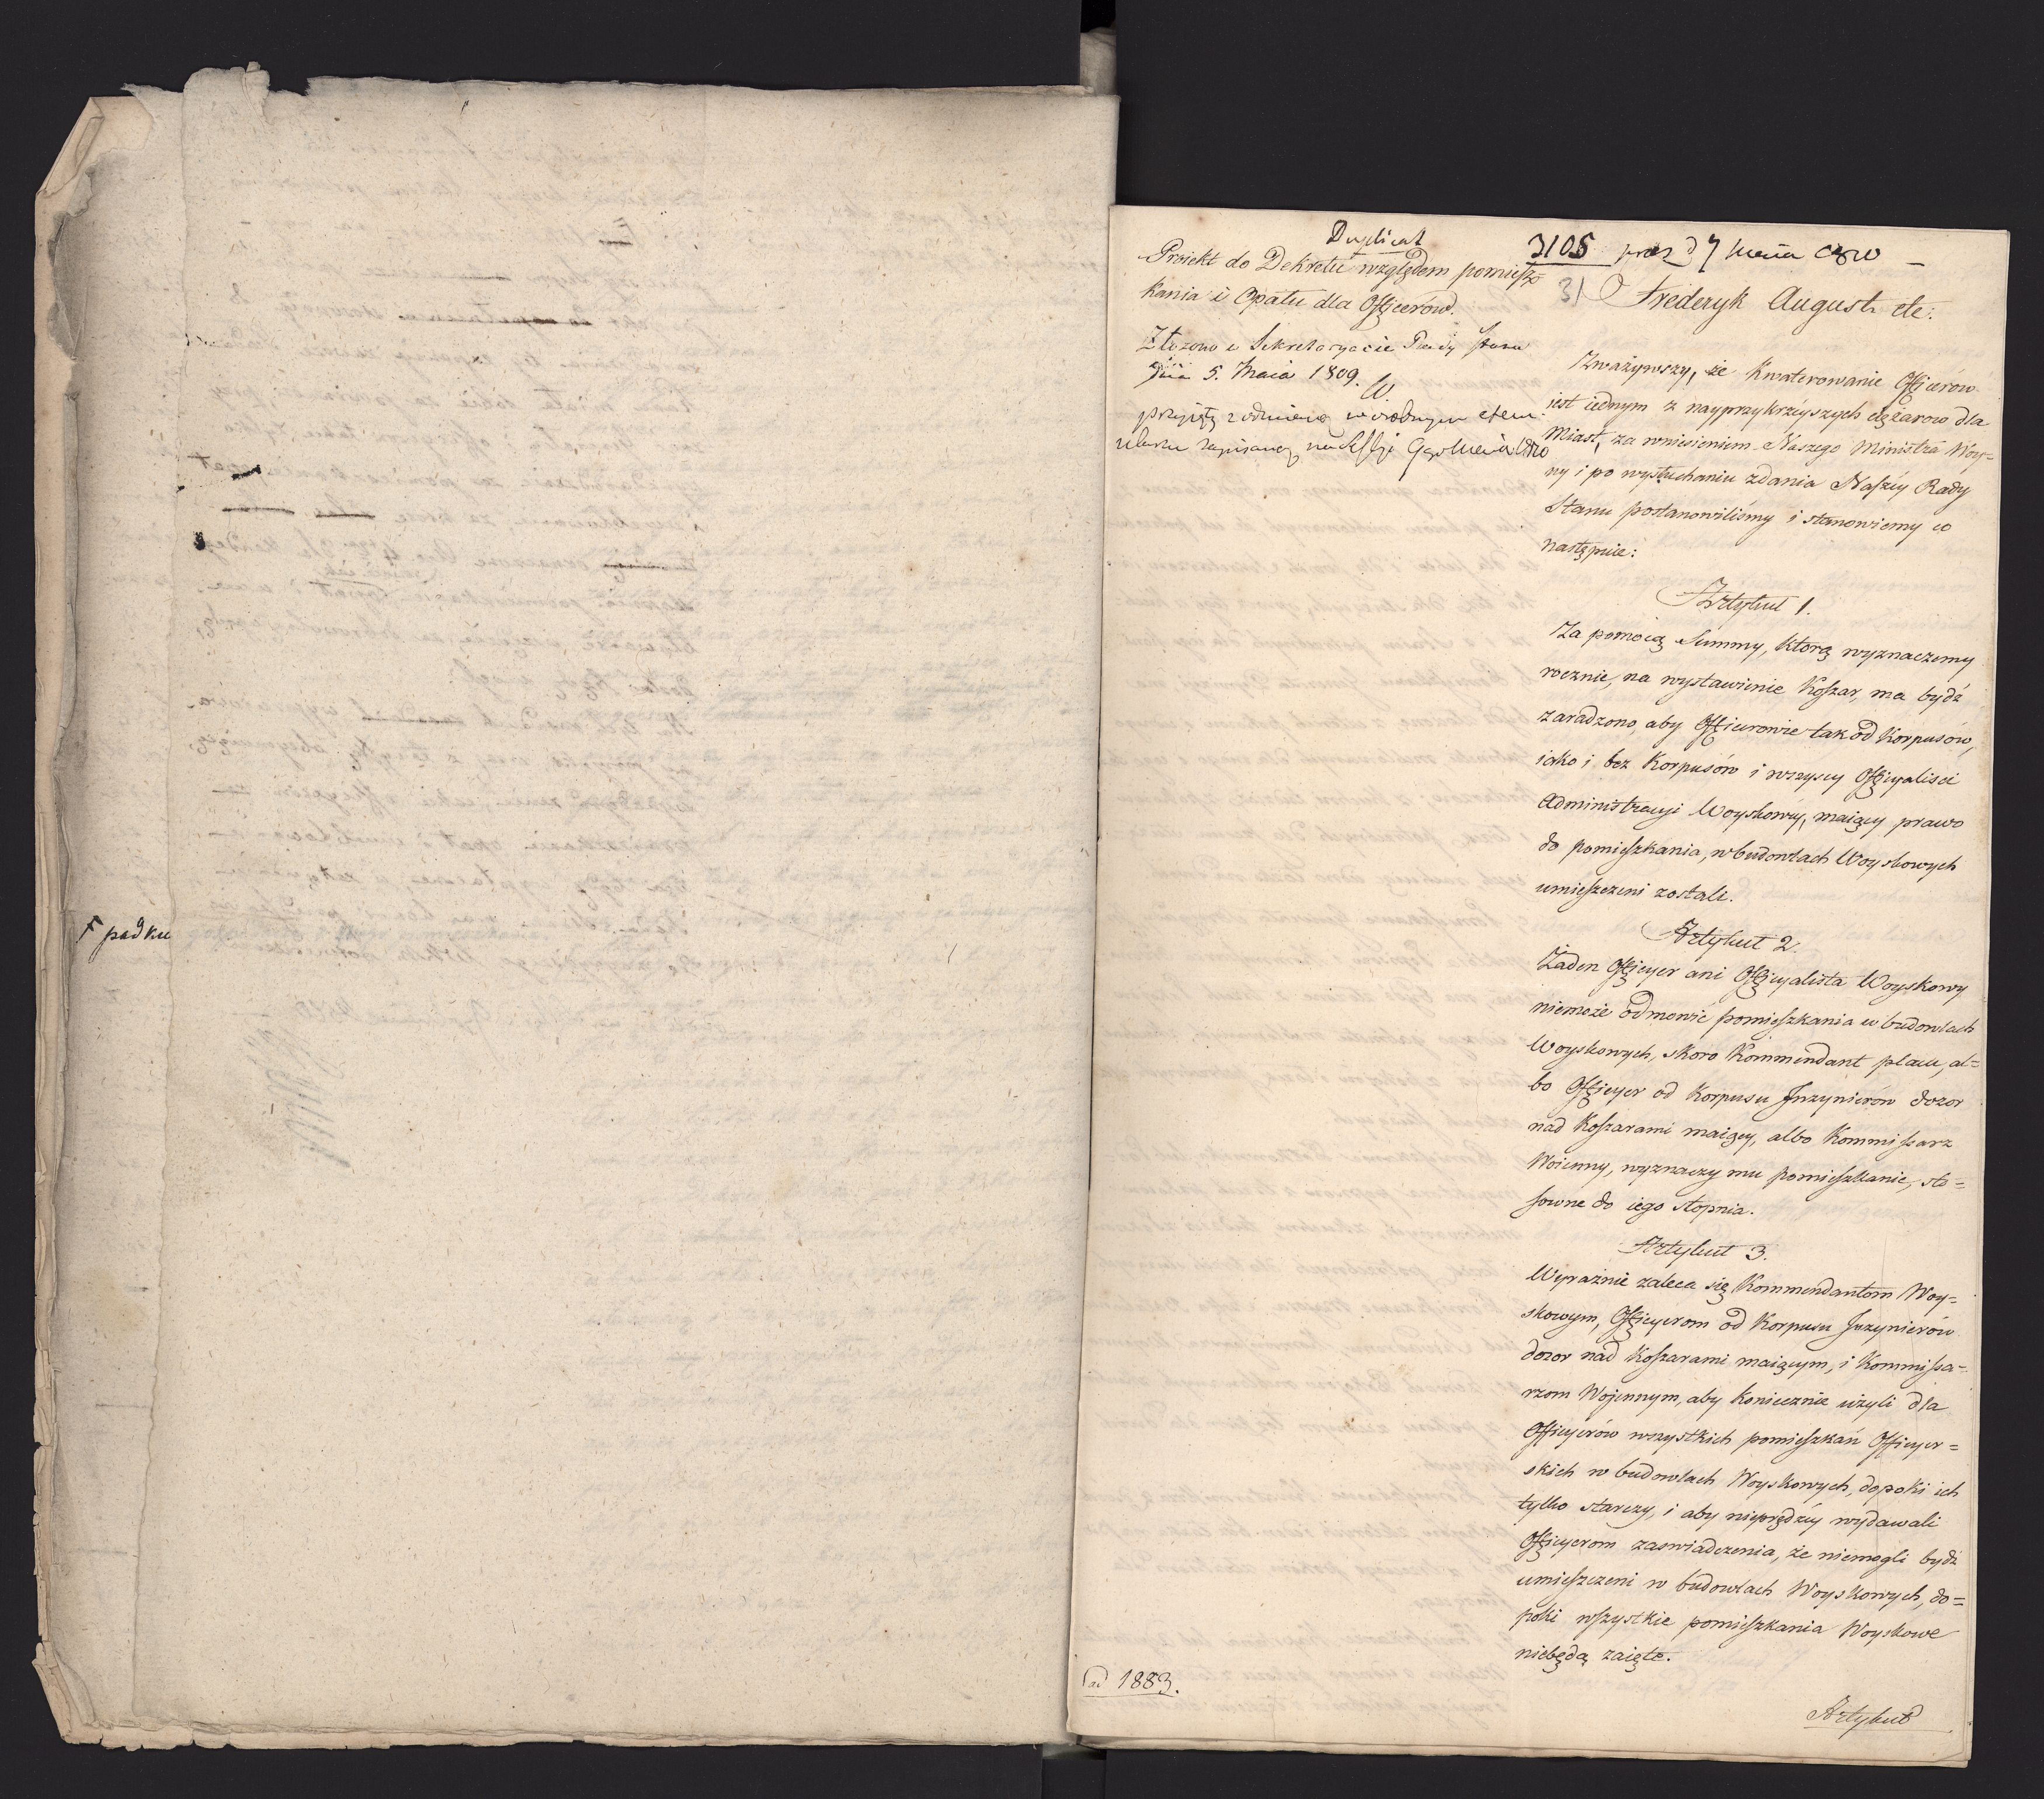 F padku
Duplicat
Proiekt do Dekretu względem pomiesz
kania i Opatu dla Officerów.
Złożono w Sekretaryacie Rady Stanu
dnia 5. Maia 1809.
przyięty z odmianą
na Sessyi
ad 1883.
3105
31
Frederyk August etc:
Zważywszy, że Kwaterowanie Officerów
iest iednym z nayprzykrzeyszych ciężarow dla
Miast, za wniesieniem Naszego Ministra Woy=
ny i po wysłuchaniu zdania Naszey Rady
Stanu postanowiliśmy i stanowiemy co
następuie:
Artykuł 1.
Za pomocą Summy, ktorą wyznaczemy
rocznie, na wystawienie Koszar, ma bydź
zaradzono, aby Officerowie tak od Korpusów,
iako i bez Korpusów i wszyscy Officyalisci
Administracyi Woyskowey, maiący prawo
do pomieszkania, w budowlach Woyskowych
umieszczeni zostali.
Artykuł 2.
Żaden Officyer ani Officyalista Woyskowy
niemoże odmowić pomieszkania w budowlach
Woyskowych, skoro Kommendant placu, al=
bo Officyer od Korpusu Inżynierów dozor
nad Koszarami maiący, albo Kommissarz
Woienny, wyznaczy mu pomieszkanie, sto=
sowne do iego stopnia.
Artykuł 3.
Wyraźnie zaleca się Kommendantom Woy=
skowym, Officyerom od Korpusu Inżynierów
dozor nad Koszarami maiącym, i Kommissa=
rzom Wojennym, aby koniecznie użyli dla
Officyerów wszystkich pomieszkań Officyer=
skich w budowlach Woyskowych, dopoki ich
tylko starczy, i aby nieprędzey wydawali
Officyerom zaswiadczenia, że niemogli bydź
umieszczeni w budowlach Woyskowych, do=
poki wszystkie pomieszkania Woyskowe
niebędą zaięte.
Artykuł